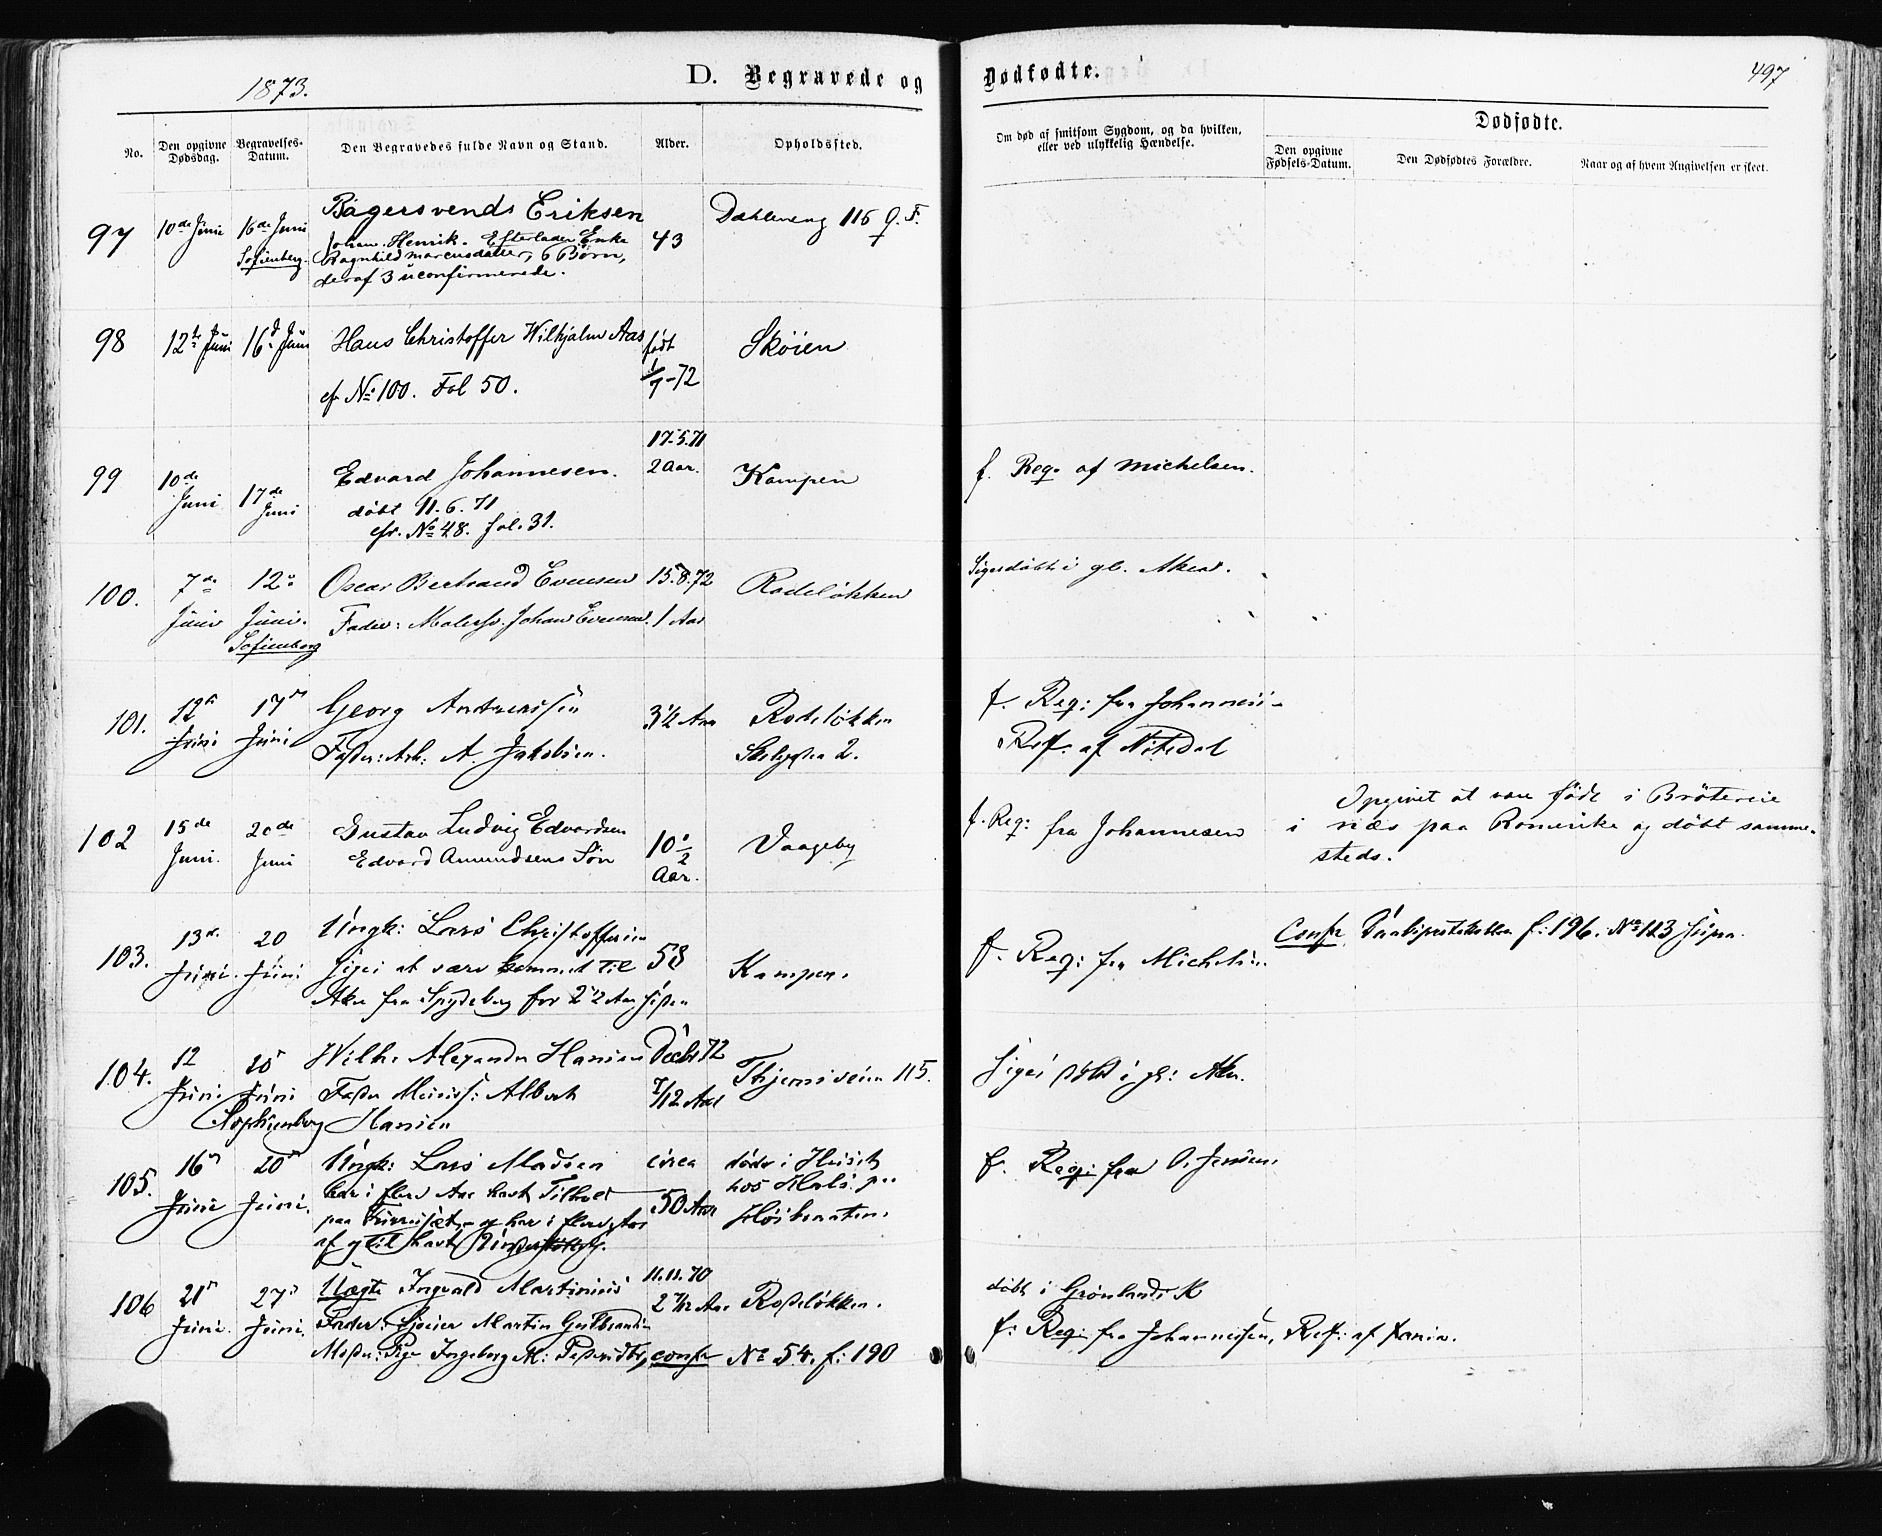 1873.
D. Begravede og Dødfødte.
497
No.
Den opgivne Dødsdag.
Begravelses-Datum.
Den Begravedes fulde Navn og Stand.
Alder.
Opholdssted.
Om død af smitsom Sygdom, og da hvilken, eller ved ulykkelig Hændelse.
Dødfødte.
Den opgivne Fødsels-Datum.
Den Dødfødtes Forældre.
Naar og af hvem Angivelsen er skeet.
97 10de Juni 16de Juni Bagersvends Eriksen 43 Dahleneng 115
Sofienberg. Johan Henrik. Efterlader Enke
Ragnhild Marcusdatter, 6 Børn,
deraf 3 uconfirmerede.
98 12te Juni 16d Juni Hans Christoffer Wilhjalm Aas født Skøien
cf No 100. Fol 50. 1/7-72
17.5.71
99 10de Juni 17de Juni Edvard Johannesen. 2 Aar. Kampen f. Req. af Michelsen.
døbt 11.6.71
cfr. No 48. fol. 31.
100. 7de Juni 12te Juni. Oscar Bertrand Evensen 15.8.72 Rodeløkken Sigesdøbt i gl. Aker.
Sofienberg Fader: Malersv. Johan Evensen. 1 Aar
101. 12te Juni 17de Juni Georg Andreassen 3 1/2 Aar Rodeløkken f. Req: fra Johannesen
Fader: Arb: A. Jakobsen. 2. Ref. af Nitedal
102 15de Juni. 20de Juni Gustav Ludvig Edvardsen 10 1/2 Aar. Vaageby f. Req: fra Johannesen
Edvard Amundsens Søn
Opgivet at være født i Brøtereie
i Næs paa Romerike og døbt samme-
steds.
103. 13de Juni. 20 Juni Ungk: Lars Christoffersen 58 Kampen. f. Req: fra Michelsen.
Siges at være kommet til
Aker fra Spydeberg for 2 1/2 Aar siden
Confr f: 196. No 123
104. 12 Juni 20de Juni Wilh. Alexander Hansen Decbr 72 115. Siges døbt i gl: Aker.
Sophienberg Fader Albert 7/12 Aar
Hansen
105. 16de Juni 20de Juni. Ungk: Lars Madsen circa døde i f. Req: fra O. Jensen.
har i flere Aar havt Tilhold 50 Aar hos
paa Furuset, og har i flere Aar
af og til havt
106 21de Juni. 27de Juni. Uægte Ingvald Martinius 11.11.70 Rodeløkken. døbt i Grønlands K
Fader: Martin Gulbrandsen 2 7/12 Aar f: Req: fra Johannesen, Ref: af
Moder: Pige Ingeborg M: confr No 54. f: 190